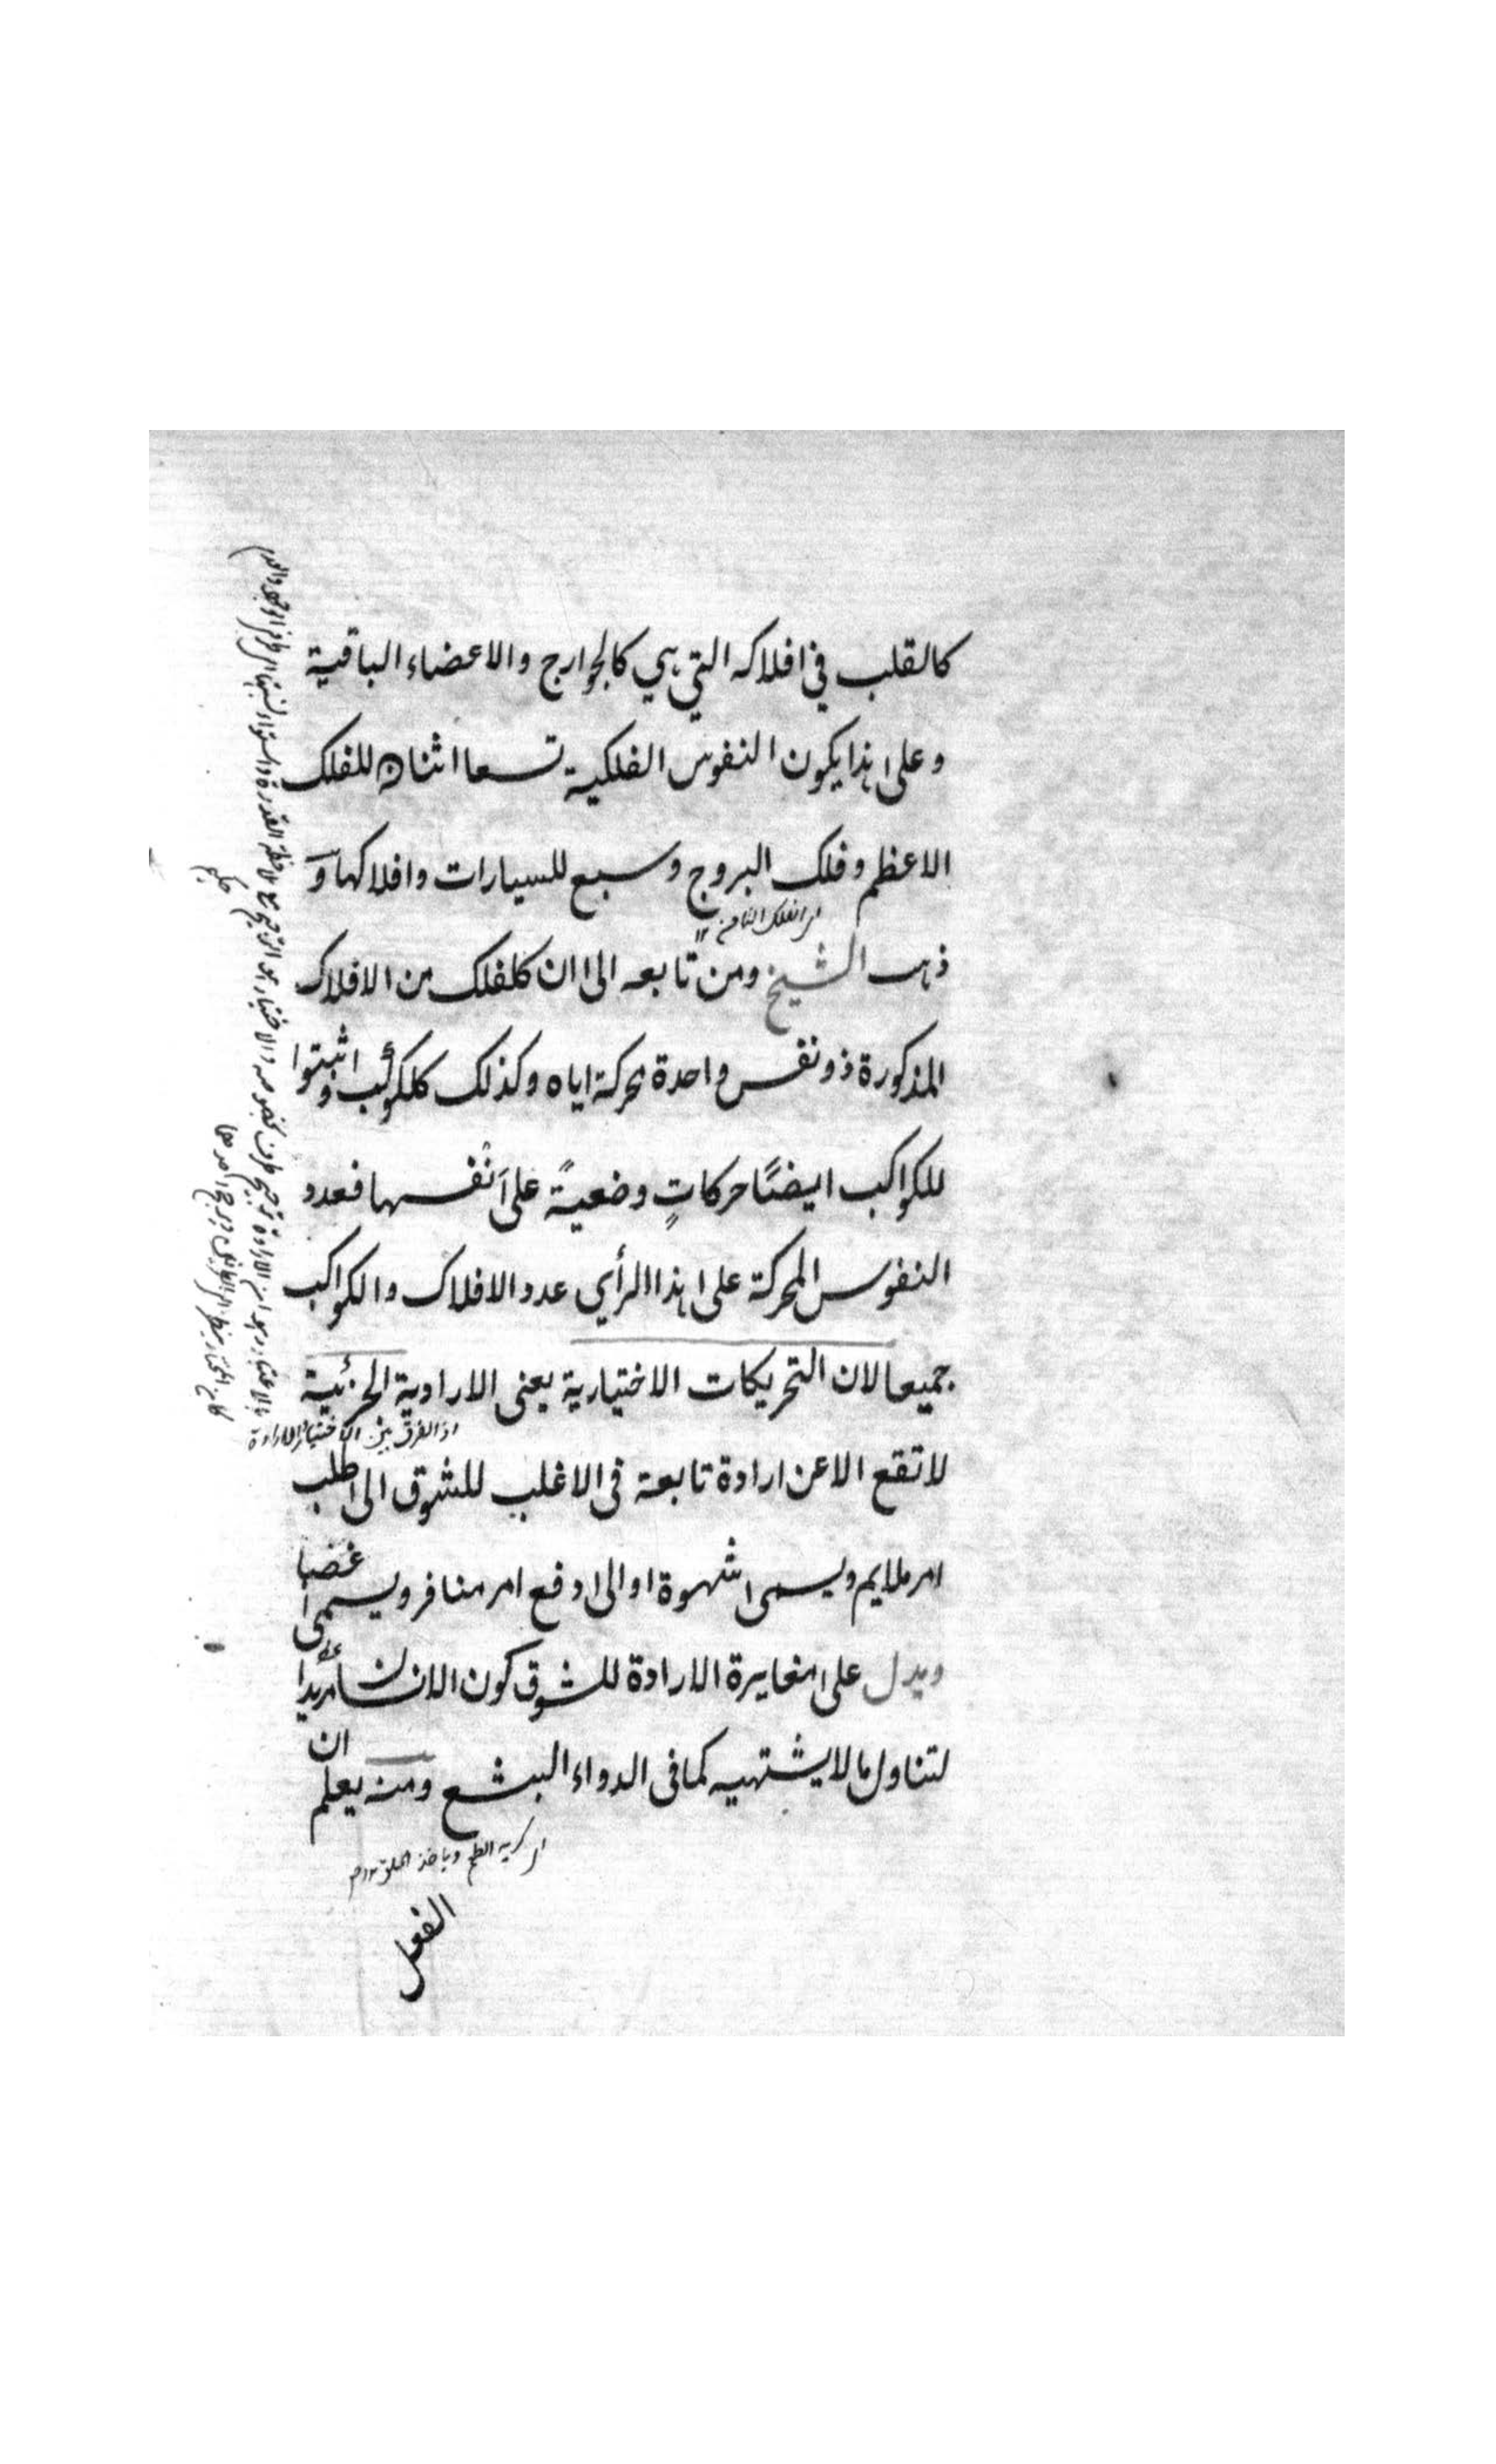 كالقلب في افلاكه التي هي كالجوارح والاعضاء الباقية
وعلى هذا يكون النفوس الفلكية تسعا اثنان للفلك
الاعظم وفلك البروج وسبع للسيارات وافلاكها و
اى الفلك الثامن ١٢
ذهب الشيخ ومن تابعه الى ان كلفلك من الافلاك
المذكورة ذو نفس واحدة محركة اياه وكذلك كلكوكب واثبتوا
للكواكب ايضًا حركاتٍ وضعيةً على انفسها فعدد
النفوس المحركة على هذا الرأي عدد الافلاك والكواكب
جميعا لان التحريكات الاختيارية يعنى الارادية الجزئية
اذ الفرق بين الاختيار والارادة
لا تقع الا عن ارادة تابعة فى الاغلب للشوق الى طلب
امر ملايم ويسمى شهوة او الى دفع امر منافر ويسمى غضبا
ويدل على مغايرة الارادة للشوق كون الانسان مريدا
لتناول ما لا يشتهيه كما فى الدواء البشع ومنه يعلم ان
اى كريه الطعم وياخذ الحلق ١٢
الفعل